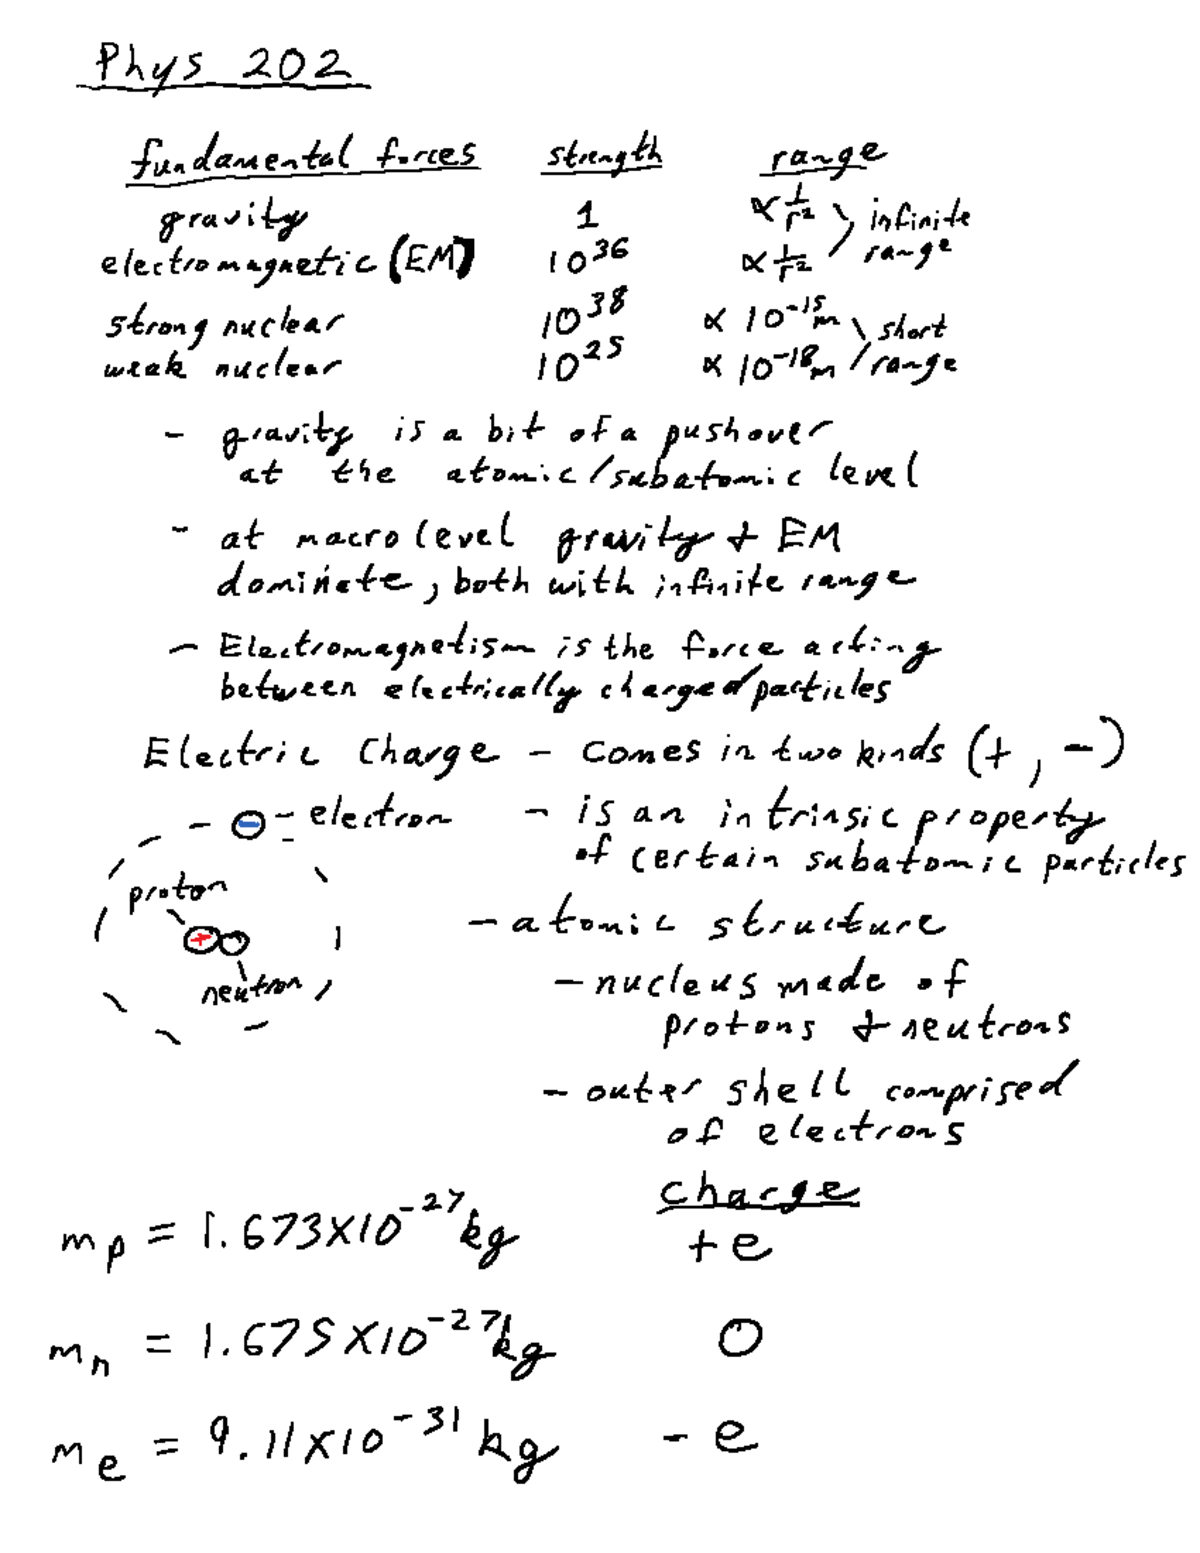 Phys 202
fundamental forces strength range
gravity 1 ∝ 1/r² infinite
electromagnetic (EM) 10³⁶ ∝ 1/r² range
strong nuclear 10³⁸ ∝ 10⁻¹⁵m short
weak nuclear 10²⁵ ∝ 10⁻¹⁸m range
- gravity is a bit of a pushover
at the atomic/subatomic level
- at macro level gravity & EM
dominate, both with infinite range
- Electromagnetism is the force acting
between electrically charged particles
Electric Charge - comes in two kinds (+, -)
⊖ - electron - is an intrinsic property
of certain subatomic particles
proton
+ - atomic structure
neutron - nucleus made of
protons & neutrons
- outer shell comprised
of electrons
charge
mₚ = 1.673X10⁻²⁷kg +e
mₙ = 1.675X10⁻²⁷kg 0
mₑ = 9.11X10⁻³¹kg -e